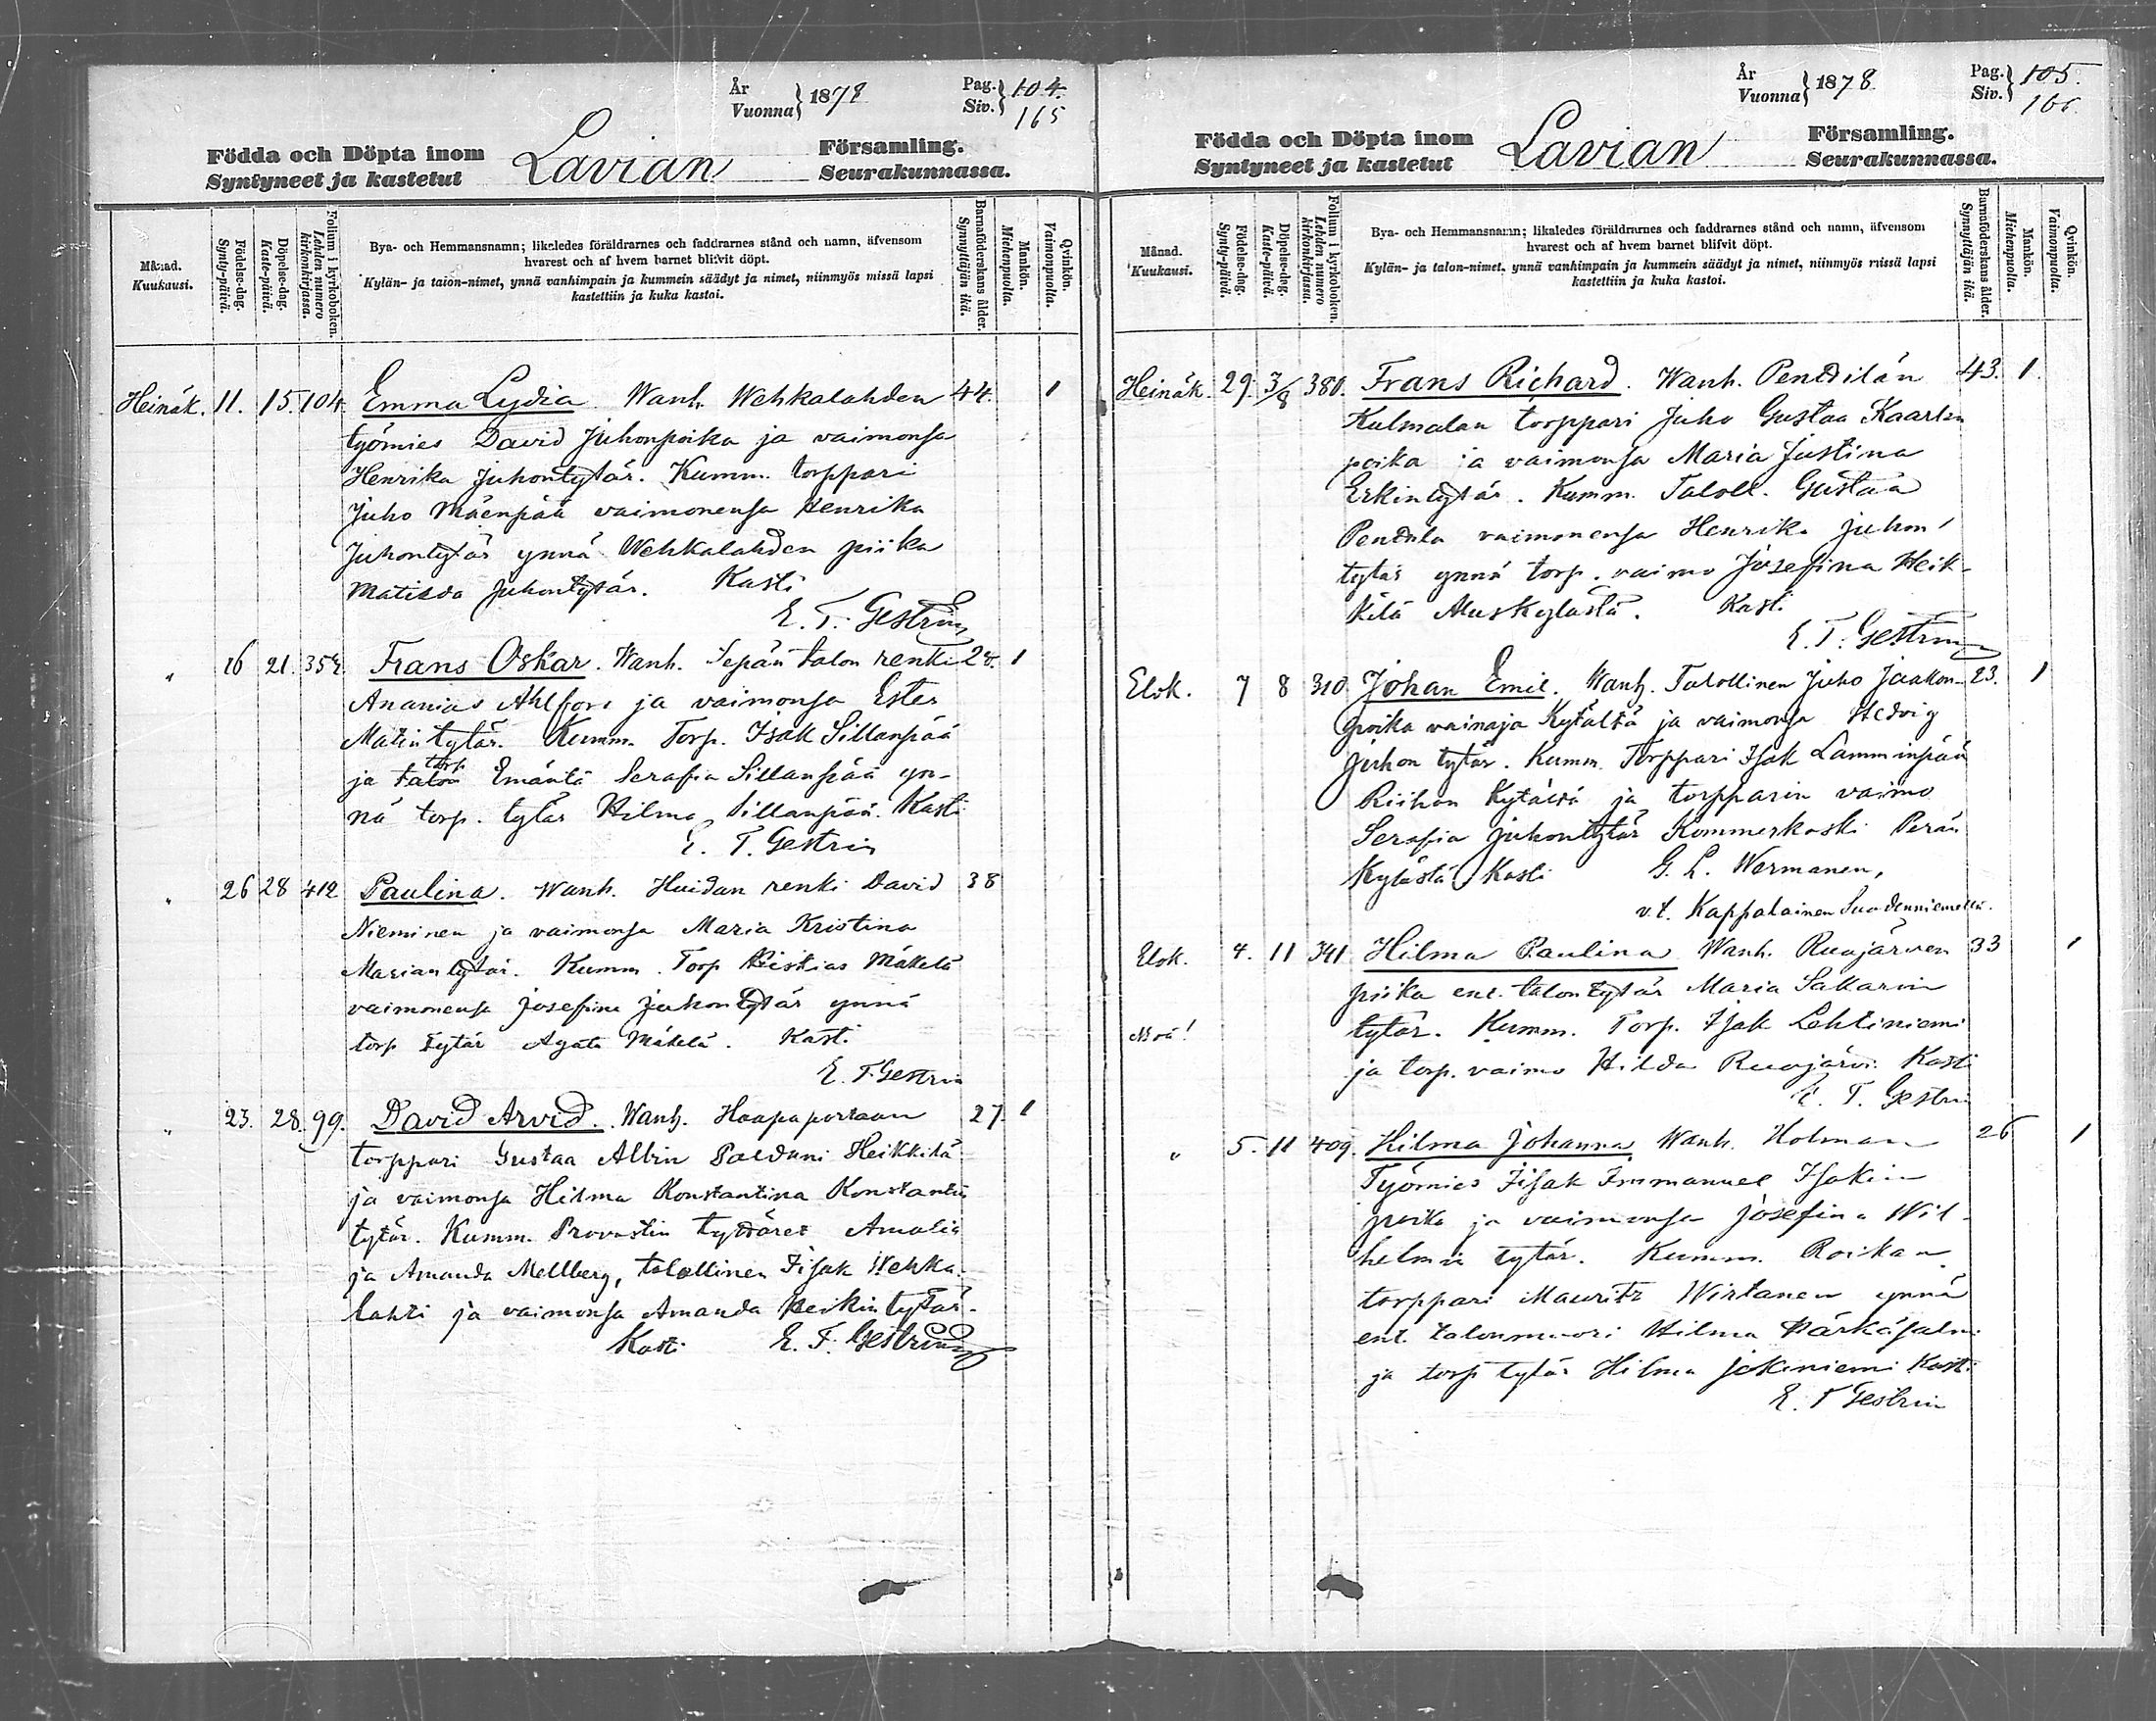 År
Vuonna } 1878
Pag.
Siv. } 104.
165
Födda och Döpta inom
Syntyneet ja kastetut
Lavian
Församling.
Seurakunnassa.
Månad.
Kuukausi.
Födelse-dag.
Synty-päivä.
Döpelse-dag.
Kaste-päivä.
Folium i kyrkoboken.
Lehden numero
kirkonkirjassa.
Bya- och Hemmansnamn; likaledes föräldrarnes och faddrarnes stånd och namn, äfvensom
hvarest och af hvem barnet blifvit döpt.
Kylän- ja talon-nimet, ynnä vanhimpain ja kummein säädyt ja nimet, niinmyös missä lapsi
kastettiin ja kuka kastoi.
Barnaföderskans ålder.
Synnyttäjän ikä.
Mankön.
Miehenpuolta.
Qvinkön.
Vaimonpuolta.
Heinäk. 11. 15. 104. Emma Lydia. Wanh. Wehkalahden 44. 1
työmies David Juhonpoika ja vaimonsa
Henrika Juhontytär. Kumm. torppari
Juho Mäenpää vaimonensa Henrika
Juhontytär ynnä Wehkalahden piika
Matilda Juhontytär. Kasti
E. T. Gestrin
" 16 21. Frans Oskar. Wanh. Sepän talon renki 1
Ananias Ahlfors ja vaimonsa Ester
Matintytär. Kumm. Torp. Isak Sillanpää
torp.
ja talon Emäntä Serafia Sillanpää yn-
nä torp. tytär Hilma Sillanpää. Kasti
E. T. Gestrin
" 26 28 412 Paulina. Wanh. Huidan renki David 38
Nieminen ja vaimonsa Maria Kristina
Mariantytär. Kumm. Torp Mäkelä
vaimonensa Josefina Juhontytär ynnä
torp tytär Agata Mäkelä. Kasti
E. T. Gestrin
" 23. 28. 99. David Arvid. Wanh. Haapaportaan 27. 1
torppari Gustaa Albin Heikkilä
ja vaimonsa Hilma Konstantina Konstantin
tytär. Kumm. Provastin tyttäret Amalia
ja Amanda Mellberg, talollinen Iisak Wehka-
lahti ja vaimonsa Amanda Heikintytär.
Kasti E. T. Gestrin
År
Vuonna } 1878.
Pag.
Siv. } 105.
166.
Födda och Döpta inom
Syntyneet ja kastetut
Lavian
Församling.
Seurakunnassa.
Månad.
Kuukausi.
Födelse-dag.
Synty-päivä.
Döpelse-dag.
Kaste-päivä.
Folium i kyrkoboken.
Lehden numero
kirkonkirjassa.
Bya- och Hemmansnamn; likaledes föräldrarnes och faddrarnes stånd och namn, äfvensom
hvarest och af hvem barnet blifvit döpt.
Kylän- ja talon-nimet, ynnä vanhimpain ja kummein säädyt ja nimet, niinmyös missä lapsi
kastettiin ja kuka kastoi.
Barnaföderskans ålder.
Synnyttäjän ikä.
Mankön.
Miehenpuolta.
Qvinkön.
Vaimonpuolta.
Heinäk. 29. 3/8 380. Frans Richard. Wanh. Penttilän 43. 1.
Kulmalan torppari Juho Gustaa Kaarlen
poika ja vaimonsa Maria Justina
Erkintytär. Kumm. Taloll. Gustaa
Penttila vaimonensa Henrika Juhon
tytär ynnä torp. vaimo Josefina Heik-
kilä Kasti
E. T. Gestrin
Elok. 7 8 310. Johan Emil. Wanh. Talollinen Juho Jaakon- 23. 1
poika vainaja Kytältä ja vaimonsa Hedvig
Juhon tytär. Kumm. Torppari Isak Lamminpää
Riihon Kytältä ja torpparin vaimo
Serafia Juhontytär Kommerkoski Perän
Kylästä Kasti G. L. Wermanen,
v.t. Kappalainen Suodenniemellä.
Elok. 4. 11 341 Hilma Paulina Wanh. Ruojärven 33 1
piika ent. talontytär Maria Sakarin
tytär. Kumm. Torp. Isak Lehtiniemi
ja torp. vaimo Hilda Ruojärvi Kasti
E. T. Gestrin
" 5. 11 409. Hilma Johanna Wanh. Holman 26 1
Työmies Iisak Immanuel Isakin
poika ja vaimonsa Josefina Wil-
helmin tytär. Kumm. Roikan
torppari Mauritz Wirtanen ynnä
ent. talonmuori Hilma
ja torp tytär Hilma Jokiniemi Kasti
E. T Gestrin